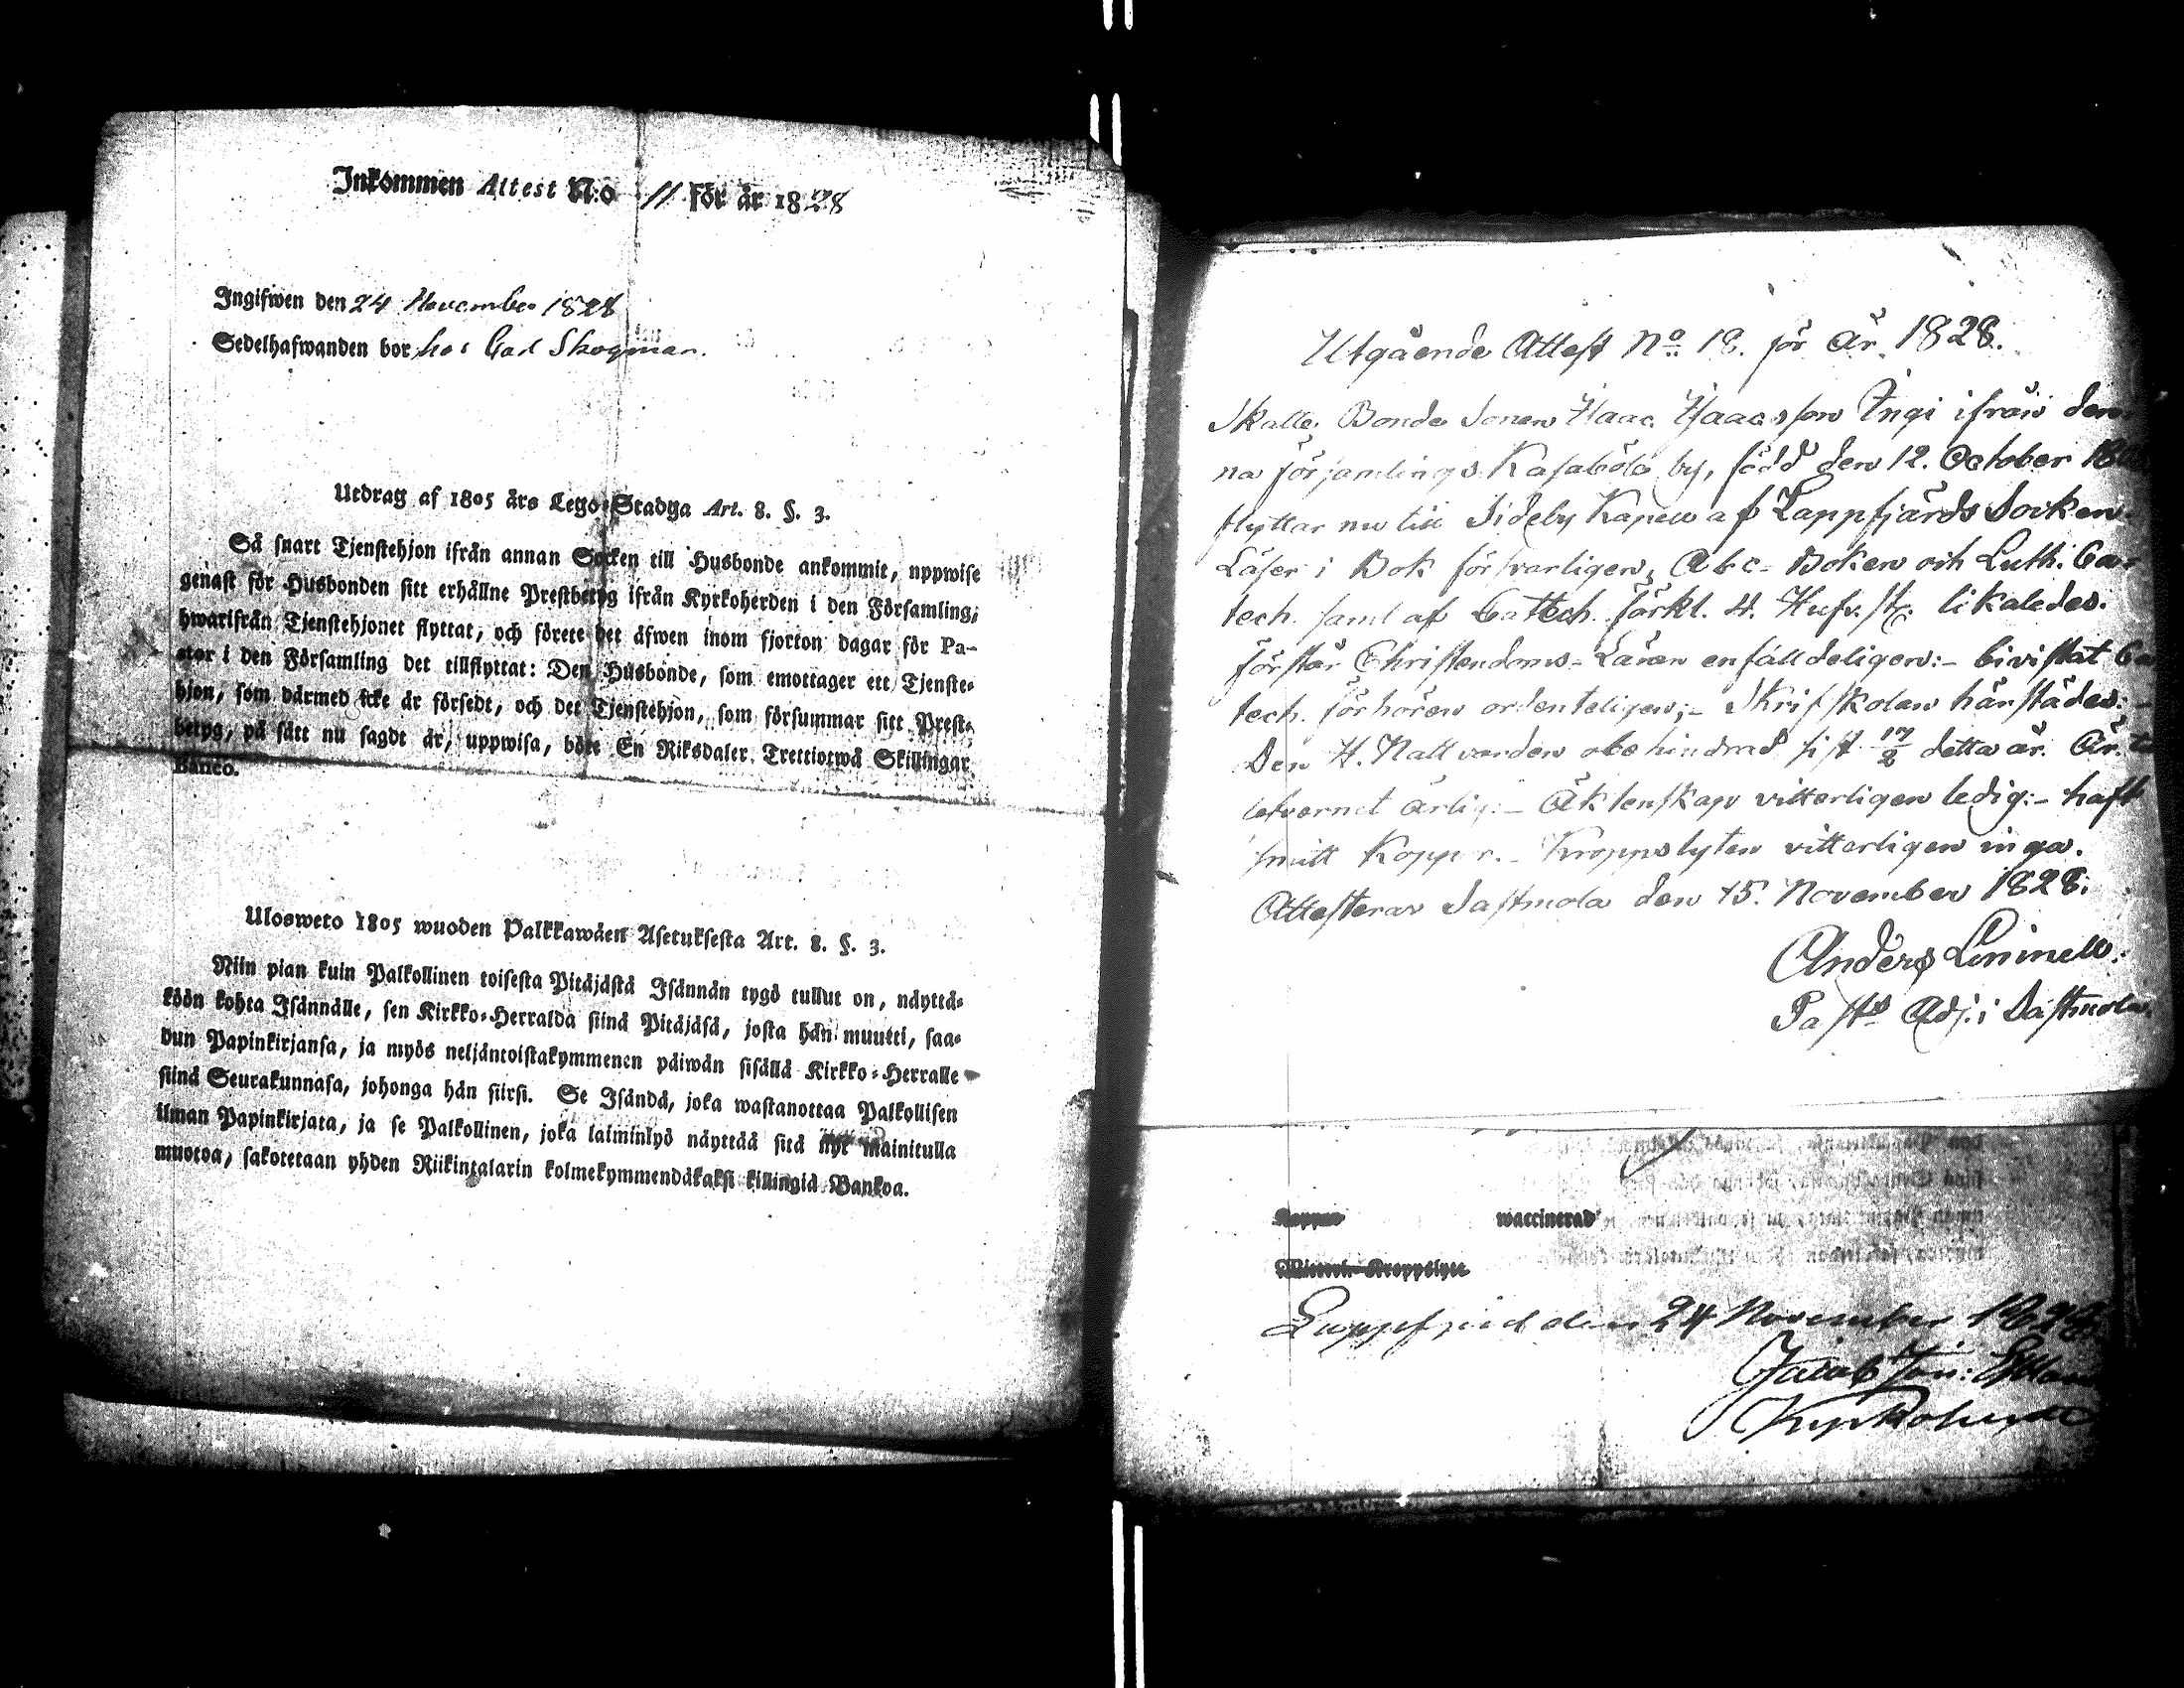 Inkommen Attest N:o 11 för år 1828
Ingifwen den 24 November 1828
Sedelhafwanden bor hos Carl Skogman.
Utdrag af 1805 års Lego-Stadga Art. 8. §. 3.
Så snart Tjenstehjon ifrån annan Socken till Husbonde ankommit, uppwise
genast för Husbonden sitt erhållne Prestbetyg ifrån Kyrkoherden i den Församling,
hwarifrån Tjenstehjonet flyttat, och förete det äfwen inom fjorton dagar för Pa-
stor i den Församling det tillflyttat: Den Husbonde, som emottager ett Tjenste-
hjon, som därmed icke är försedt, och det Tjenstehjon, som försummar sitt Prest-
betyg, på sätt nu sagdt är, uppwisa, böte En Riksdaler Trettiotwå Skillingar
Banco.
Ulosweto 1805 wuoden Palkkawäen Asetuksesta Art. 8. §. 3.
Niin pian kuin Palkollinen toisesta Pitäjästä Isännän tygö tullut on, näyttä-
köön kohta Isännälle, sen Kirkko-Herralda siinä Pitäjäsä, josta hän muutti, saa-
dun Papinkirjansa, ja myös neljäntoistakymmenen päiwän sisällä Kirkko-Herralle
siinä Seurakunnasa, johonga hän siirsi. Se Isändä, joka wastanottaa Palkollisen
ilman Papinkirjata, ja se Palkollinen, joka laiminlyö näyttää sitä nyt mainitulla
muotoa, sakotetaan yhden Riikintalarin kolmekymmendäkaksi killingiä Bankoa.
Utgående Attest No 18. för År 1828.
Skatte Bonde Sonen Isaac Isaacsson Ingi ifrån den-
na församlings Kasaböle by, född den 12. October
flyttar nu till Sideby Kapell af Lappfjärds Socken.
Läser i Bok försvarligen, Abc-Boken och Luth. Ca-
tech. samt af Catech. förkl. 4. Hufv. st. likaledes.
förstår Christendoms-Läran enfälldeligen:- bivistat Ca
tech. förhören ordenteligen;- Skriftskolan härstädes:-
Den H. Nattvarden obehindrad sist 17/8 detta år. Är
lefvernet ärlig:- Äktenskap vitterligen ledig:- haft
smitt Koppor.- Kroppslyten vitterligen inga.
Attesterar Sastmola den 15. November 1828.
Anders Lininell.
Past: Adj: i Sastmola.
Koppor waccinerad
Witterl. Kroppslyte
Lappfjerd den 24 November 1828.
Jacob Joh:
Kyrkoherde